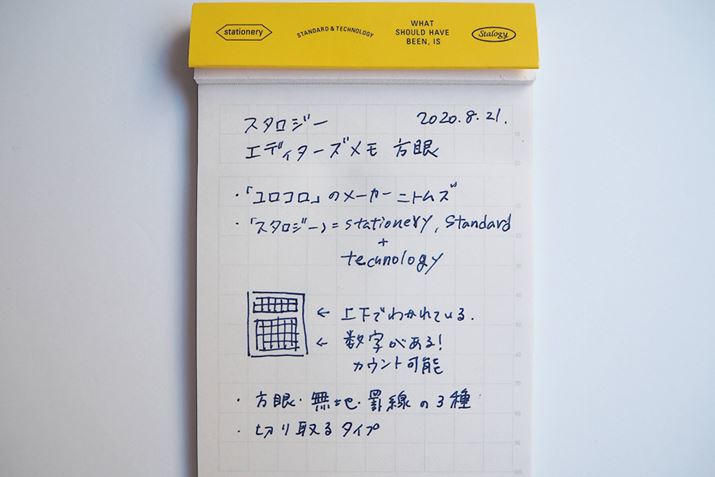 stationery
STANDARD & TECHNOLOGY
WHAT
SHOULD HAVE
BEEN, IS
Stalogy
スタロジー 2020.8.21.
エディターズメモ 方眼
・「コロコロ」のメーカー ニトムズ
・「スタロジー」= stationery, Standard
+
technology
← 上下でわかれている.
← 数字がある!
カウント可能
・方眼・無地・罫線の3種
・切り取るタイプ